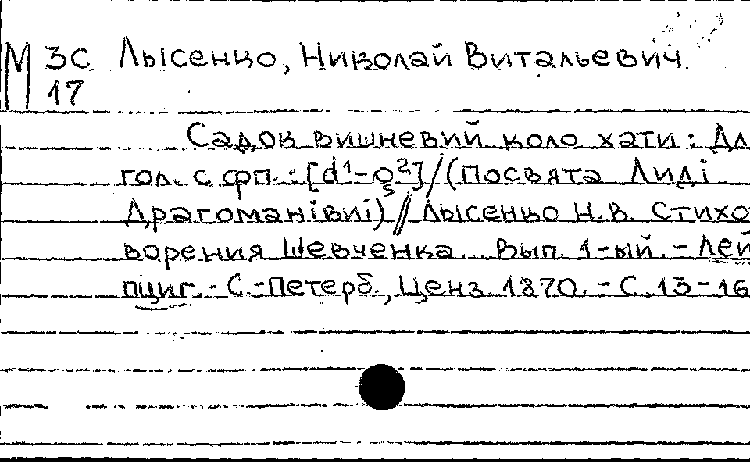 М 3С Лысенко, Николай Витальевич
17
Садок вишневий коло хати: Дл
гол. с фп. : [d¹-g²] / (Посвята Лиді
Драгомановій) // Лысенко Н.В. Стихо
ворения Шевченка. Вып. 1-ый. - Лей
пциг. - С.-Петерб., Ценз. 1870. - С. 13-16